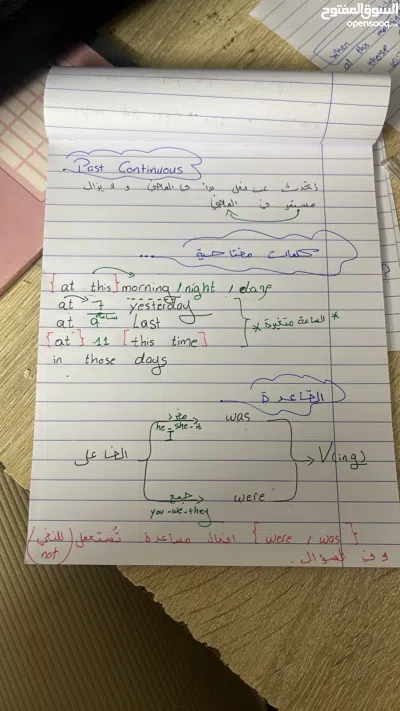 السوق المفتوح
opensooq.com
when
at this mo
those
Past Continuous
نتحدث عن فعل بدأ في الماضي و لا يزال
مستمر في الماضي
كلمات مفتاحية ...
{at this} morning / night / days
at 7 yesterday
at 9 Last
{at} 11 [this time]
in those days
* الساعة متغيرة *
ساعة
القاعدة
الفاعل
مفرد
he - she - it
I
was
جمع
you - we - they
were
V(ing)
{were , was} افعال مساعدة تُستعمل (للنفي
not)
و في السؤال .